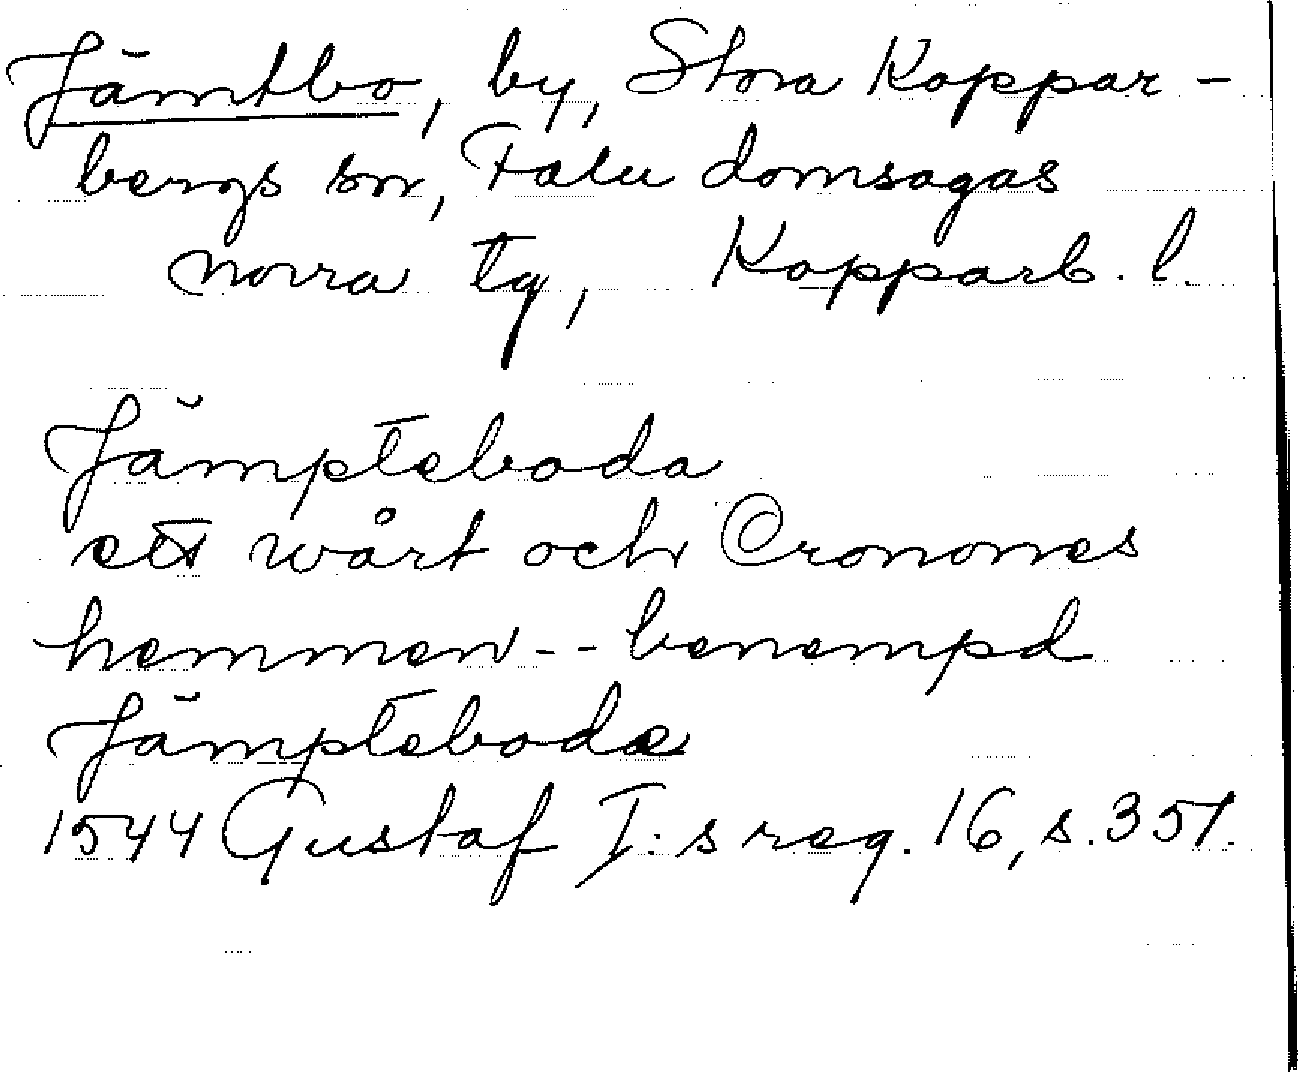 Jämtbo, by, Stora Koppar-
bergs sn, Falu domsagas
norra tg, Kopparb. l.
Jämpteboda
ett wårt och Cronones
hemmen -- benempd
Jämpteboda
1544 Gustaf I:s reg. 16, s. 351.